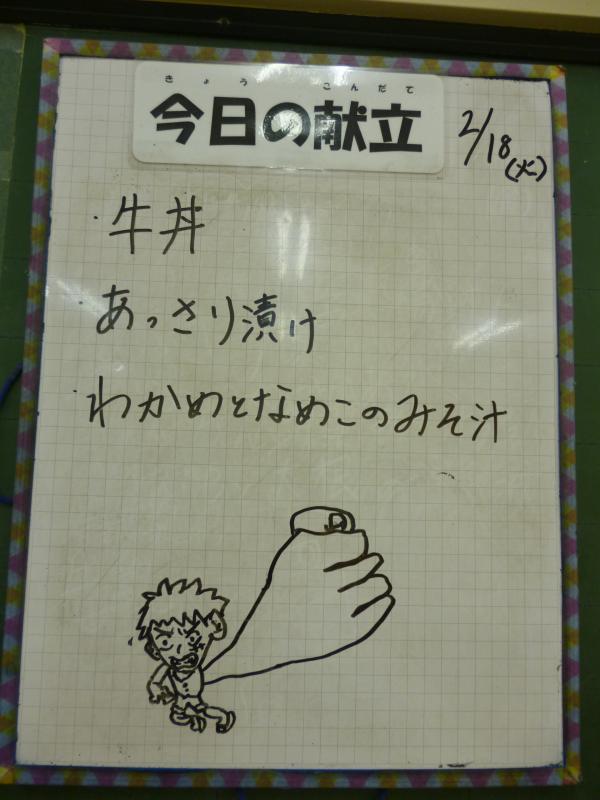 きょう こんだて
今日の献立
2/18(火)
・牛丼
・あっさり漬け
・わかめとなめこのみそ汁